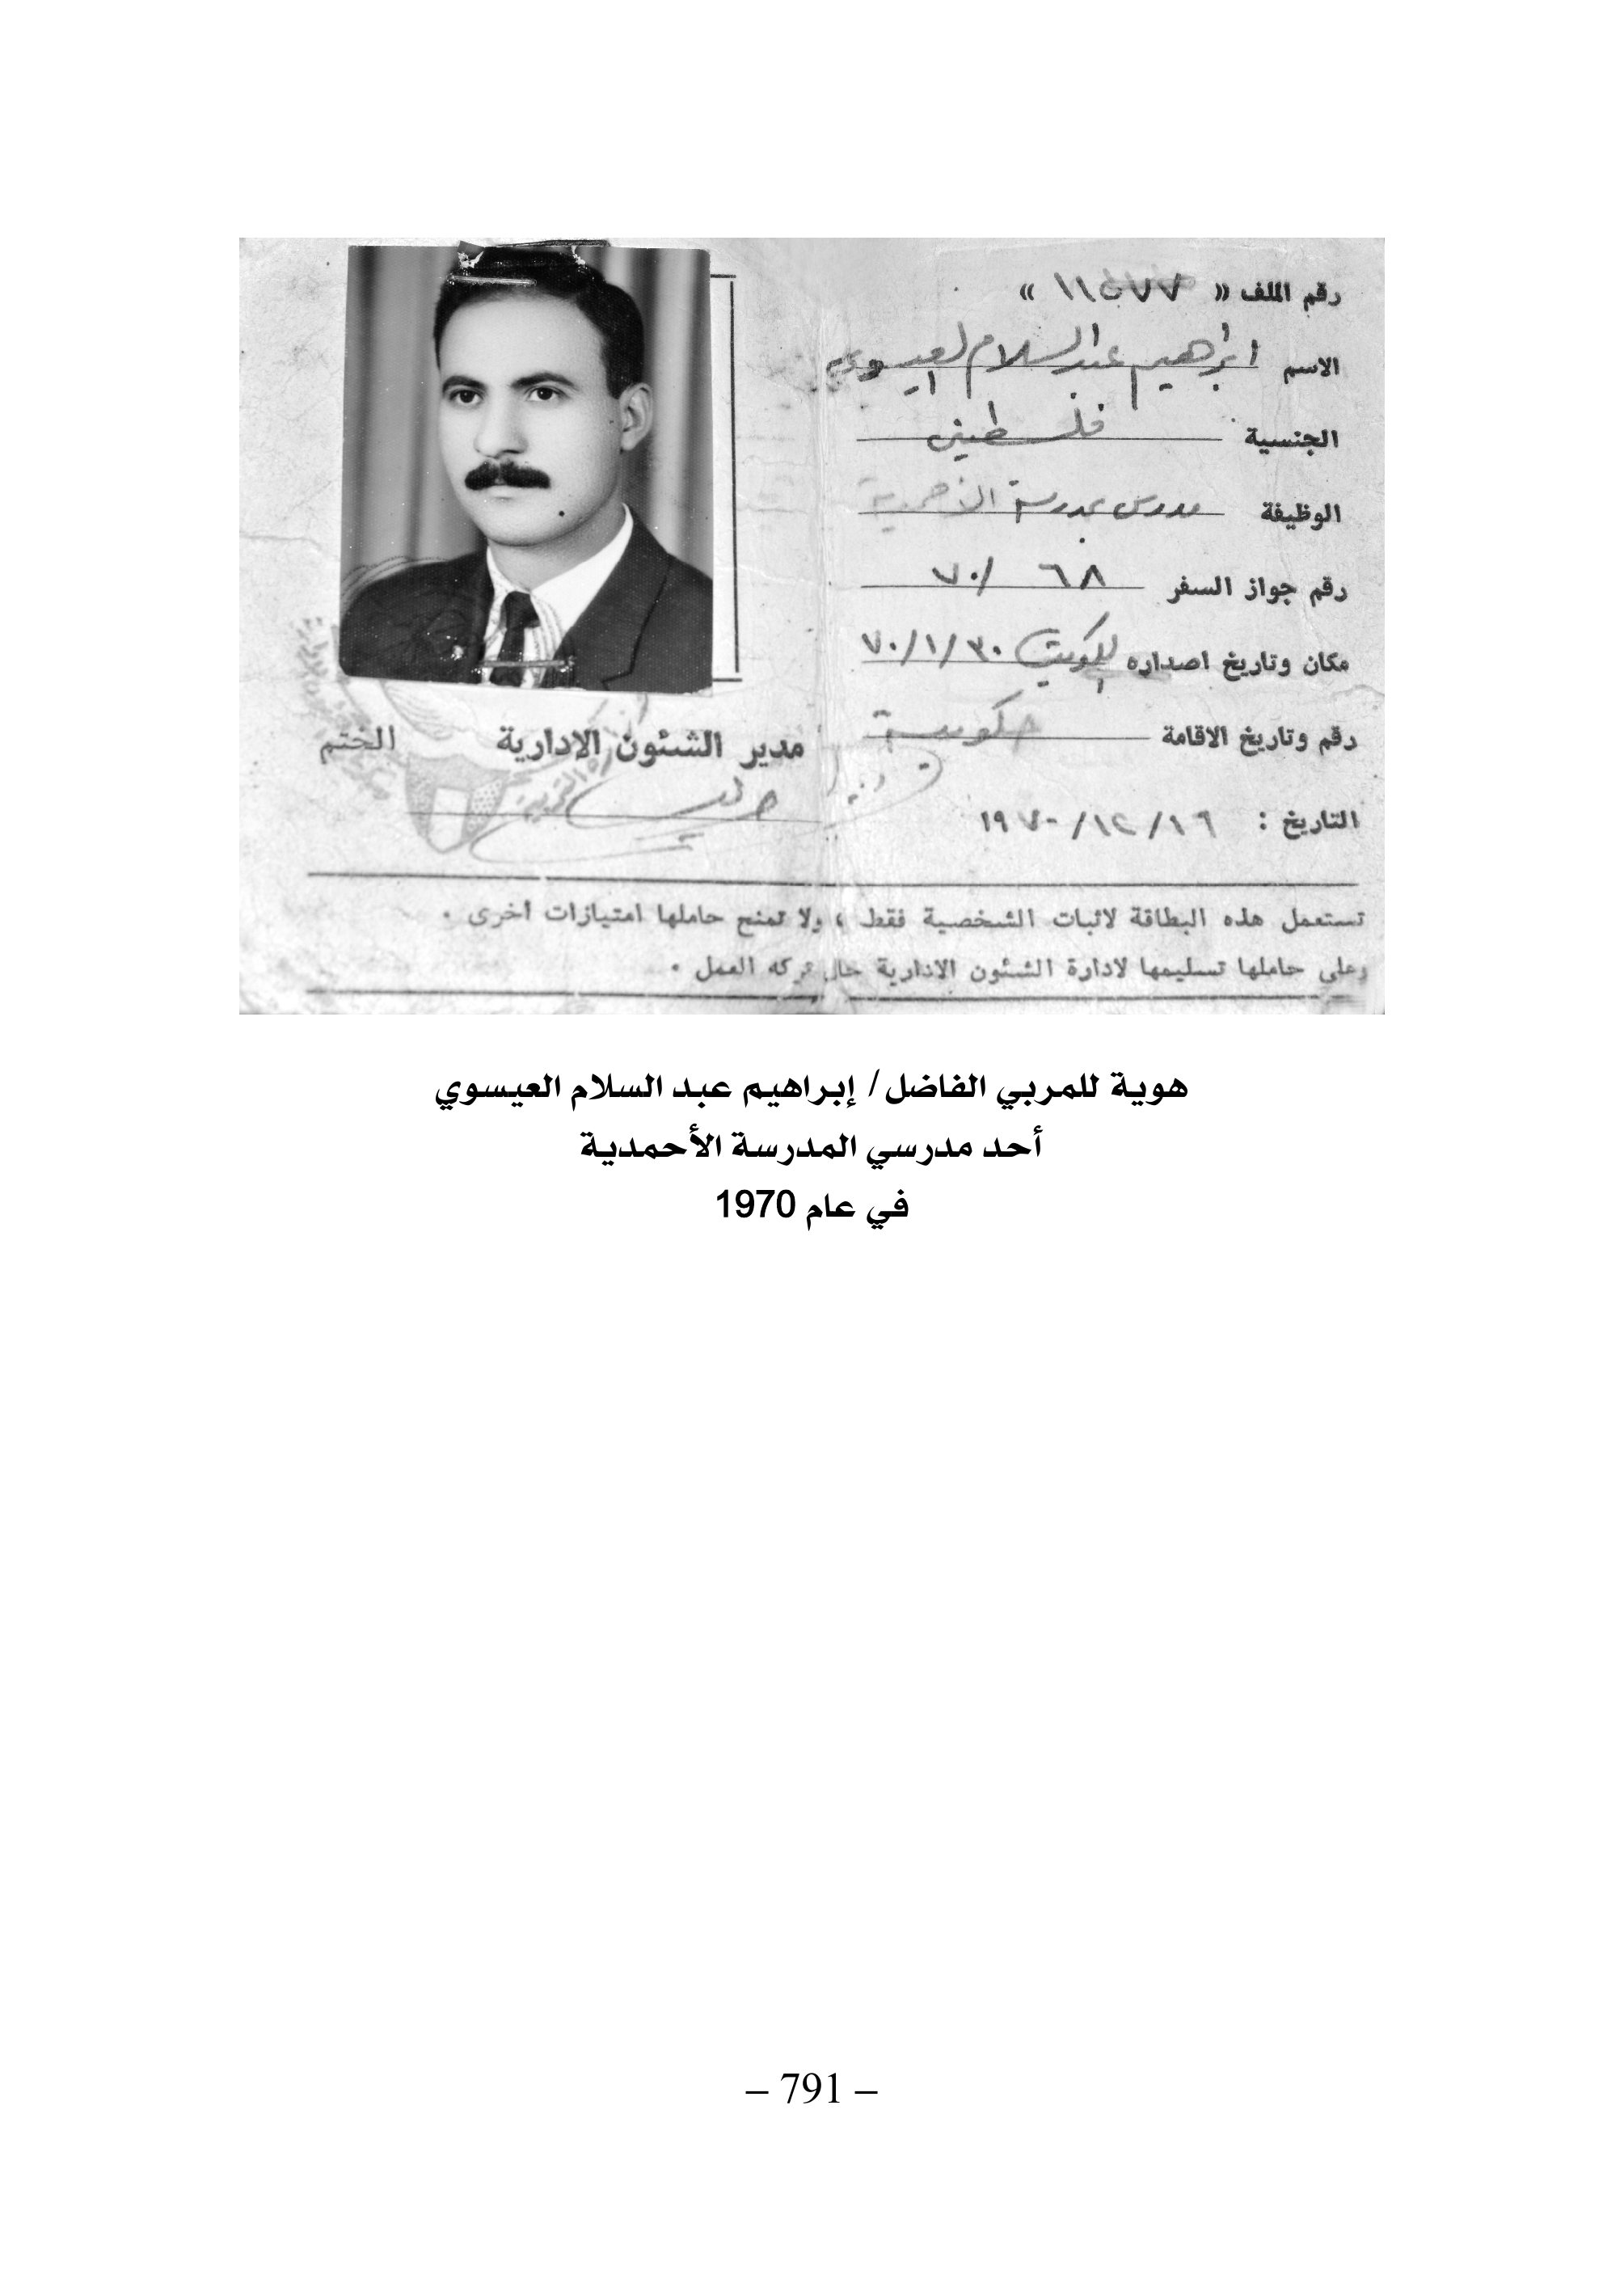 رقم الملف « ١١٥٧٧ »
الاسم ابراهيم عبد السلام العيسوي
الجنسية فلسطيني
الوظيفة مدرس بمدرسة الأحمدية
رقم جواز السفر ٦٨ /٧٠
مكان وتاريخ اصداره الكويت ٧٠/١/٣٠
رقم وتاريخ الاقامة حكومية
التاريخ : ١٦ /١٢/ ١٩٧٠
مدير الشئون الإدارية الختم
تستعمل هذه البطاقة لاثبات الشخصية فقط ، ولا تمنح حاملها امتيازات أخرى .
وعلى حاملها تسليمها لادارة الشئون الادارية حال تركه العمل .
هوية للمربي الفاضل/ إبراهيم عبد السلام العيسوي
أحد مدرسي المدرسة الأحمدية
في عام 1970
– 791 –